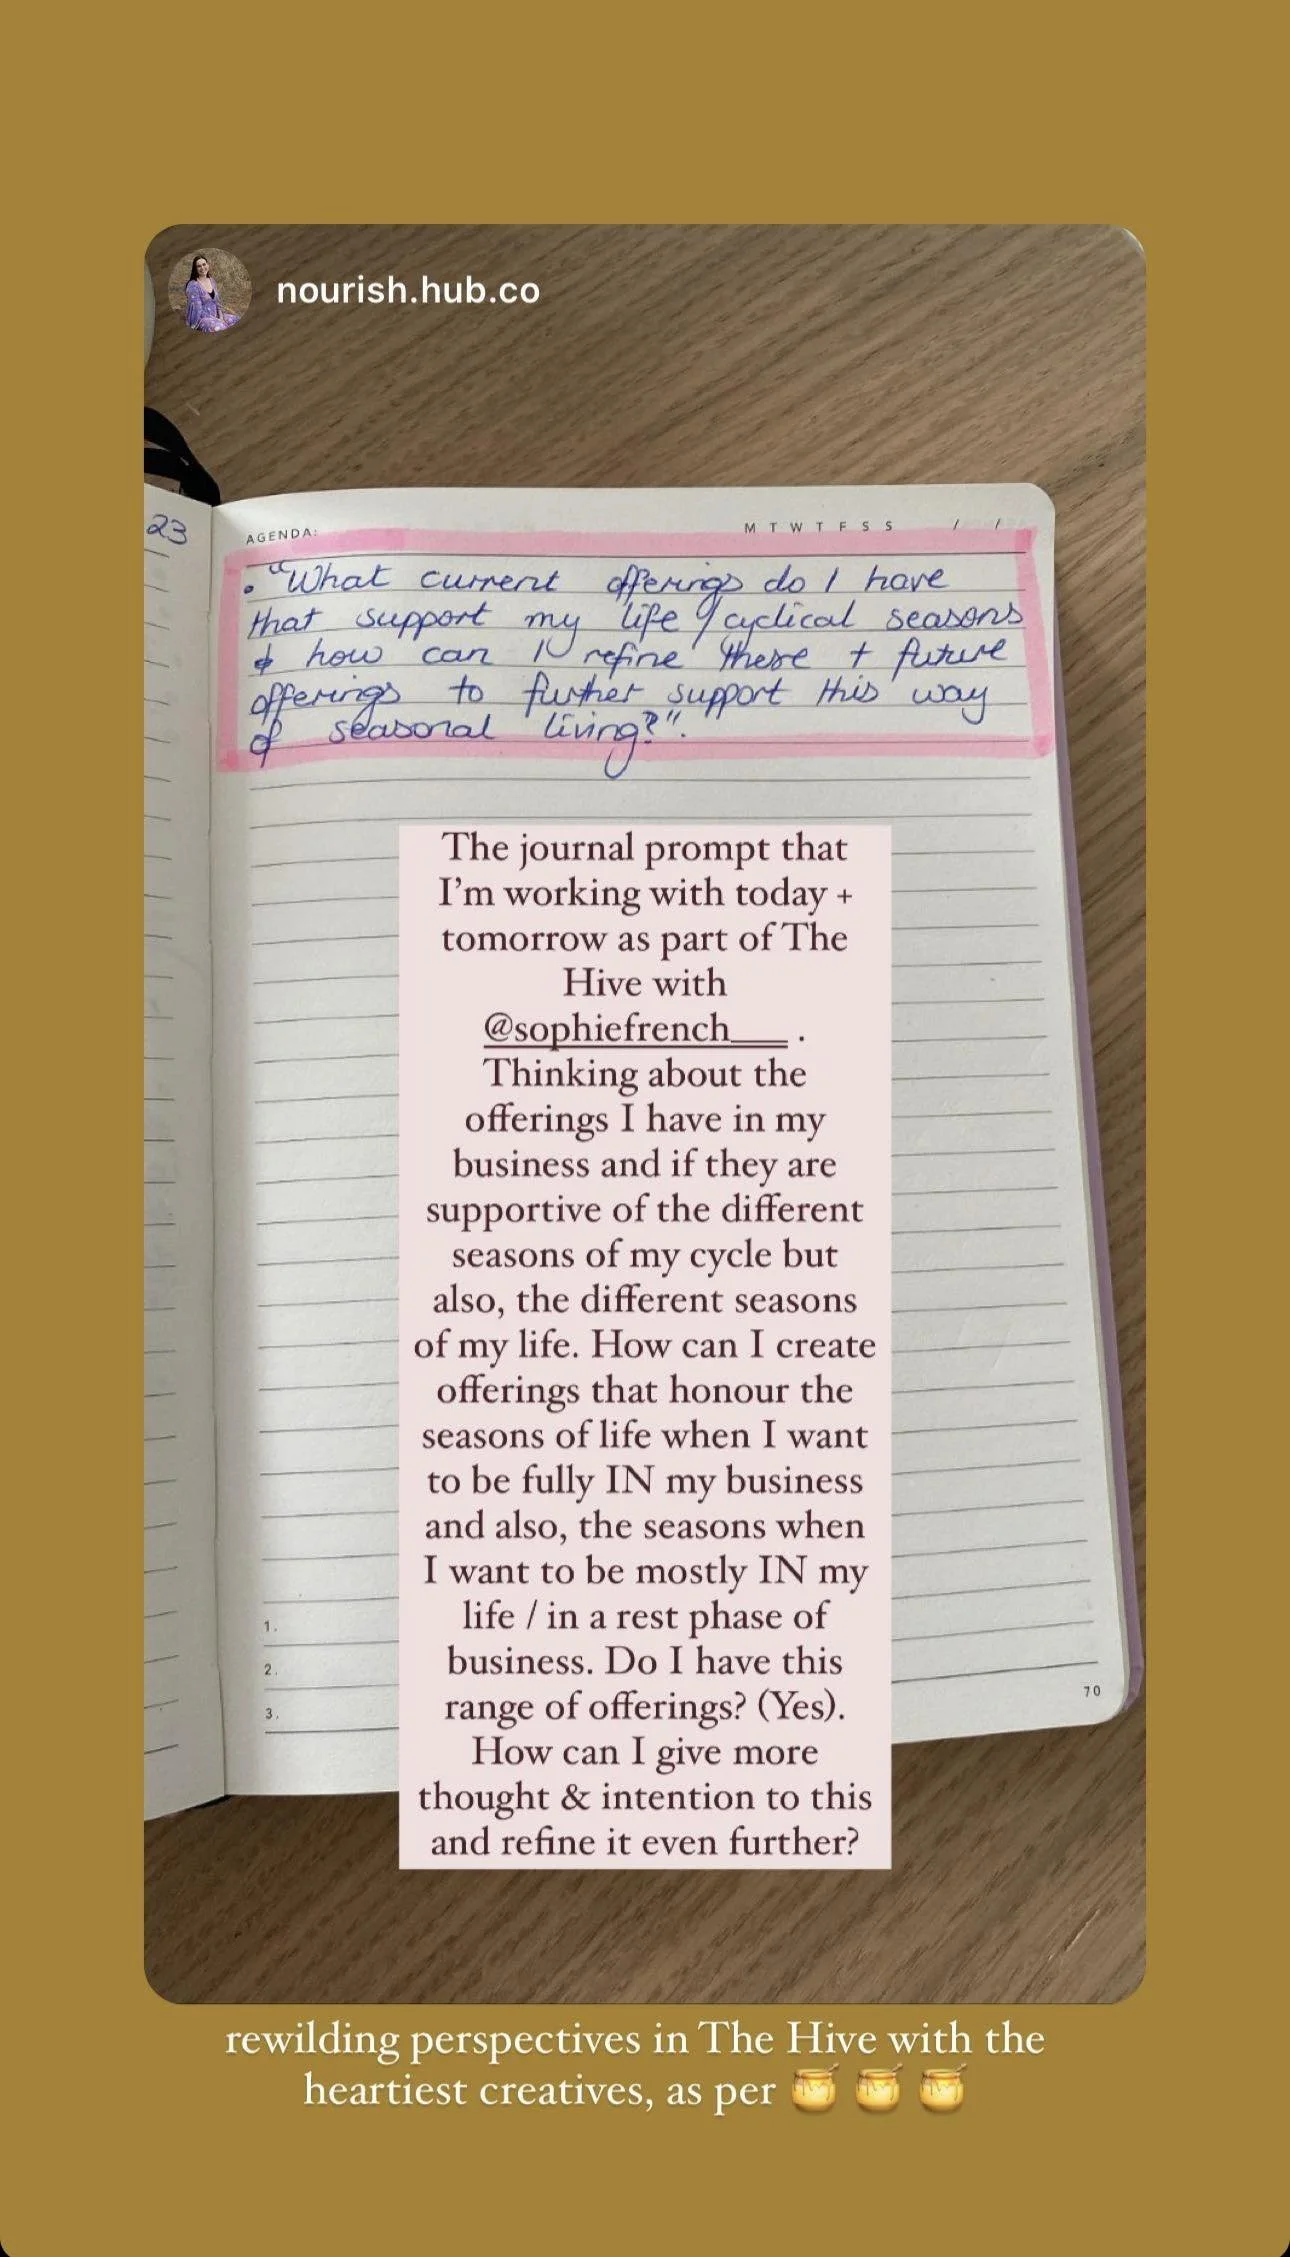 nourish.hub.co
23
AGENDA:
M T W T F S S / /
• "What current offerings do I have
that support my life / cyclical seasons
& how can I refine these + future
offerings to further support this way
of seasonal living?".
The journal prompt that
I'm working with today +
tomorrow as part of The
Hive with
@sophiefrench___ .
Thinking about the
offerings I have in my
business and if they are
supportive of the different
seasons of my cycle but
also, the different seasons
of my life. How can I create
offerings that honour the
seasons of life when I want
to be fully IN my business
and also, the seasons when
I want to be mostly IN my
life / in a rest phase of
business. Do I have this
range of offerings? (Yes).
How can I give more
thought & intention to this
and refine it even further?
1.
2.
3.
70
rewilding perspectives in The Hive with the
heartiest creatives, as per 🍯 🍯 🍯